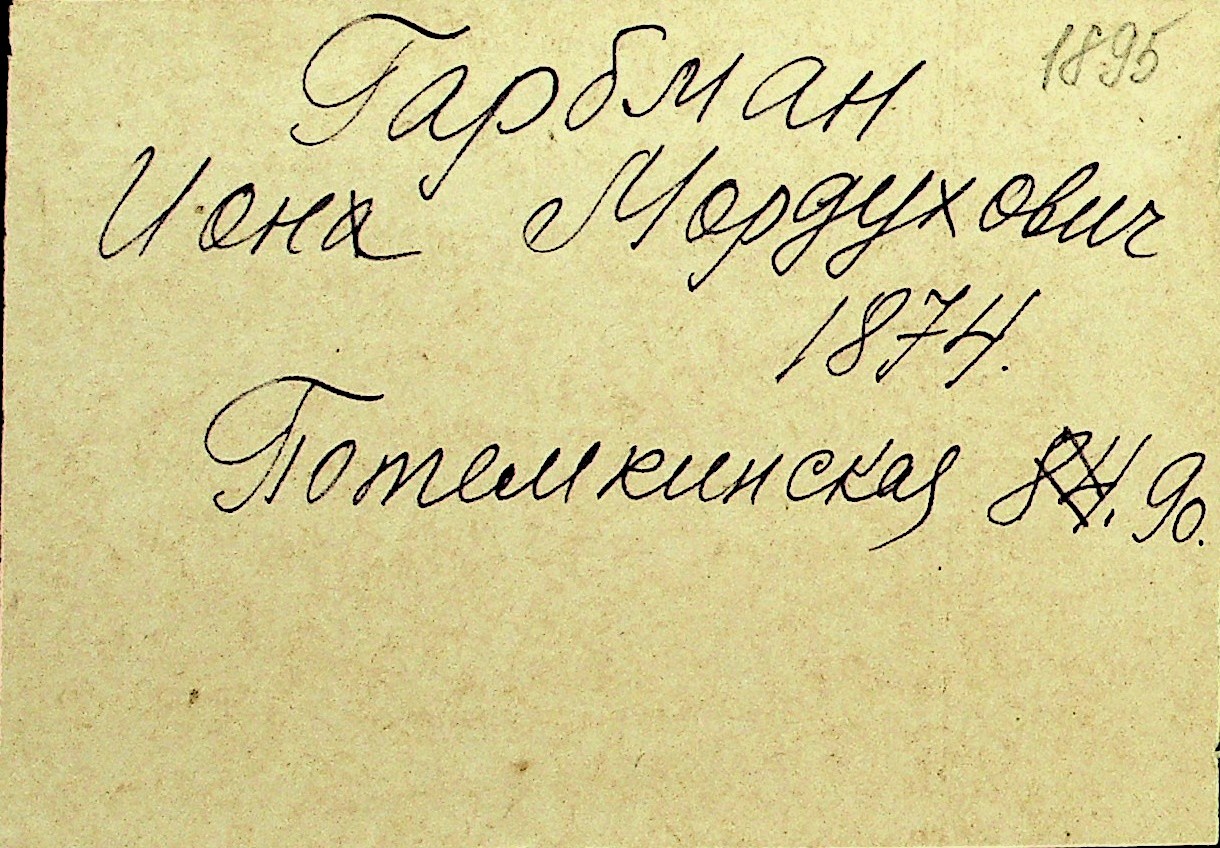 1895
Гарбман
Иона Мордухович
1874.
Потемкинская 84. 90.